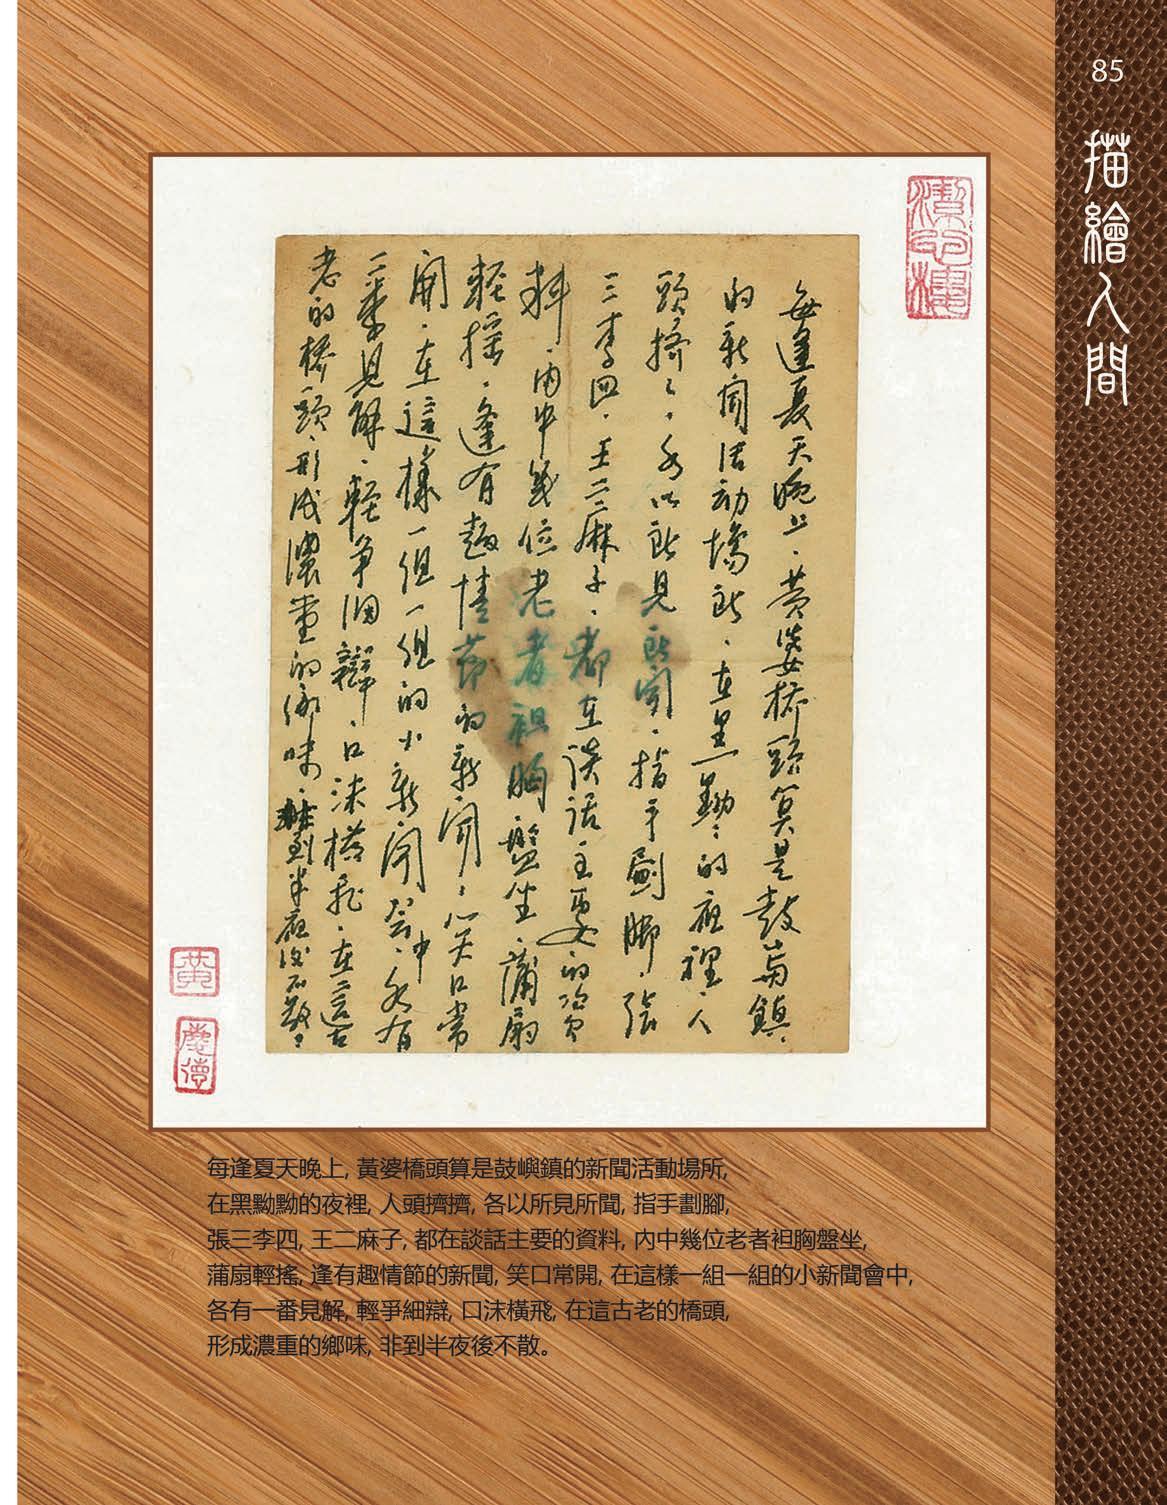 85
描繪人間
每逢夏天晚上，黃婆桥頭算是鼓嵛鎮
的新聞活动場所，在黑黝々的夜裡，人
頭擠々，各以所見所聞，指手劃脚，張
三李四，王二麻子，都在谈话主要的资
料，内中幾位老者袒胸盤坐，蒲扇
輕搖，逢有趣情節的新聞，笑口常
開，在這樣一组一组的小新聞会中，各有
一番見解，輕争细辯，口沫横飛，在這古
老的桥頭，形成濃重的鄉味，非到半夜後不散。
黃
慶德
每逢夏天晚上, 黃婆橋頭算是鼓嶼鎮的新聞活動場所,
在黑黝黝的夜裡, 人頭擠擠, 各以所見所聞, 指手劃腳,
張三李四, 王二麻子, 都在談話主要的資料, 內中幾位老者袒胸盤坐,
蒲扇輕搖, 逢有趣情節的新聞, 笑口常開, 在這樣一組一組的小新聞會中,
各有一番見解, 輕爭細辯, 口沫橫飛, 在這古老的橋頭,
形成濃重的鄉味, 非到半夜後不散。